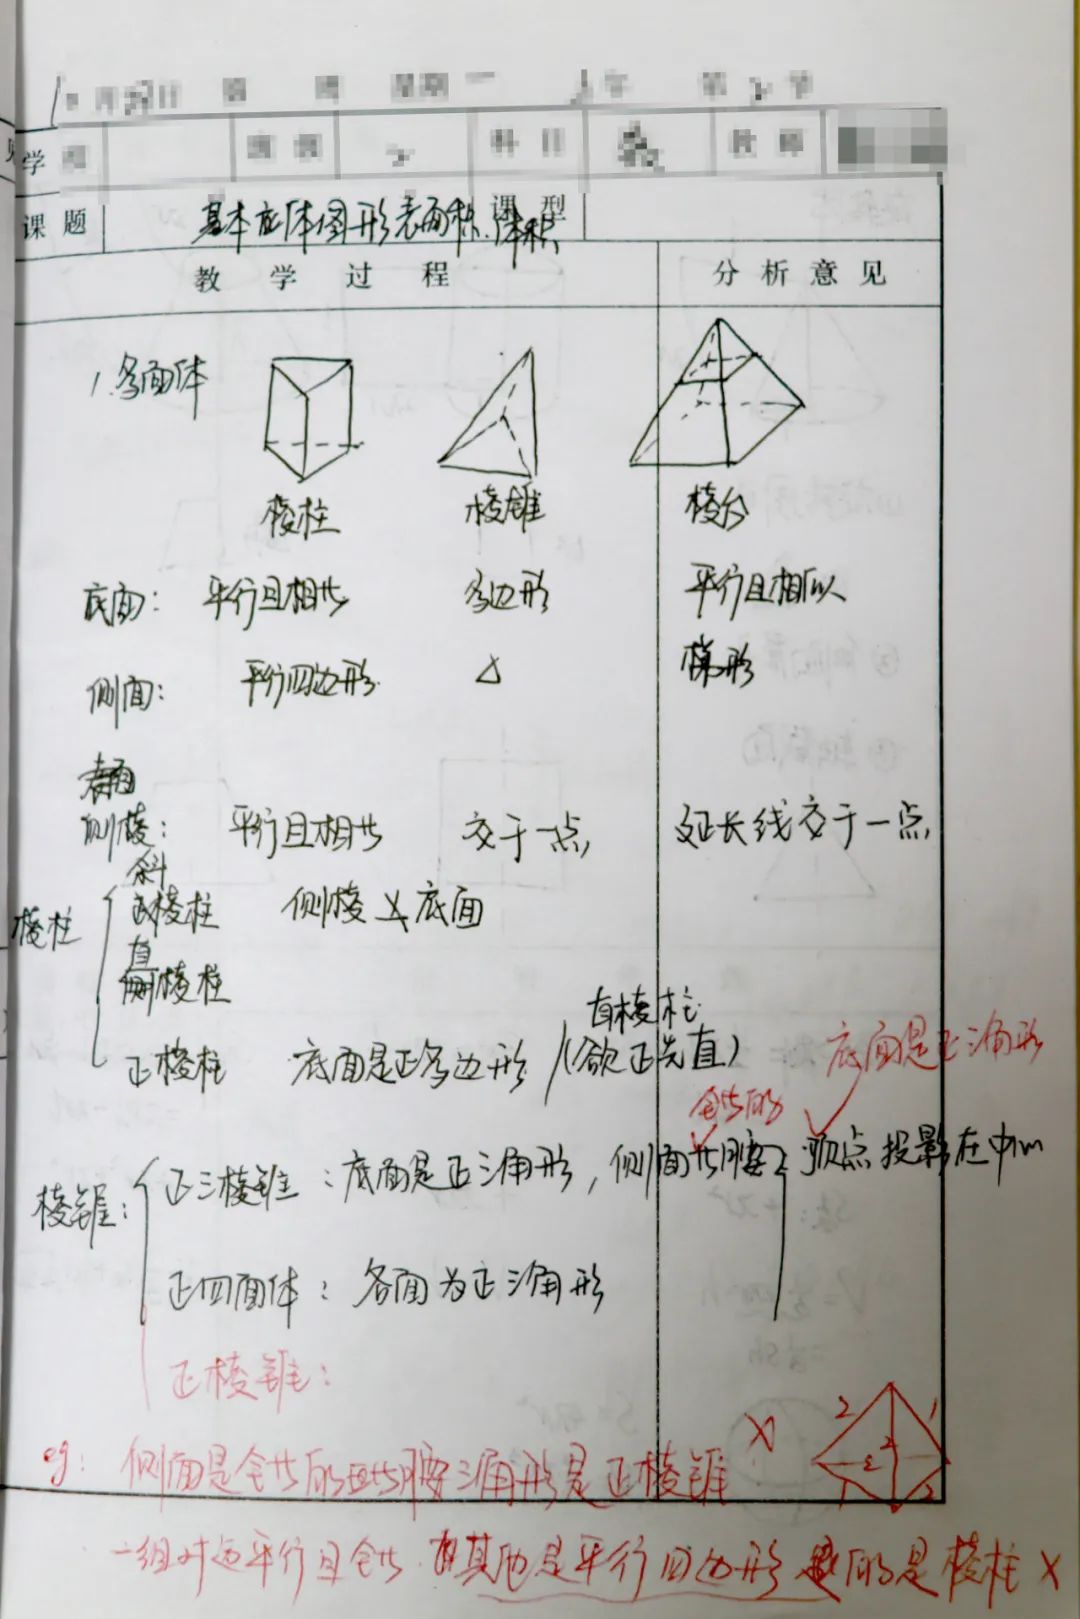 学
课题 基本立体图形表面积.体积 课型
教学过程 分析意见
1.多面体
棱柱 棱锥 棱台
底面: 平行且相等 多边形 平行且相似
侧面: 平行四边形 △ 梯形
侧棱: 平行且相等 交于一点, 延长线交于一点,
斜
棱柱 棱柱 侧棱 底面
直
棱柱
直棱柱
正棱柱 底面是正多边形 (欲正先直) 底面是正三角形
全等的
棱锥: 正三棱锥: 底面是正三角形, 侧面等腰 顶点投影在中心
正四面体: 各面为正三角形
正棱锥:
2 1
2 2
1 2
eg: 侧面是全等的等腰三角形是正棱锥 X
一组对边平行且全等. 其他是平行四边形 的是棱柱 X